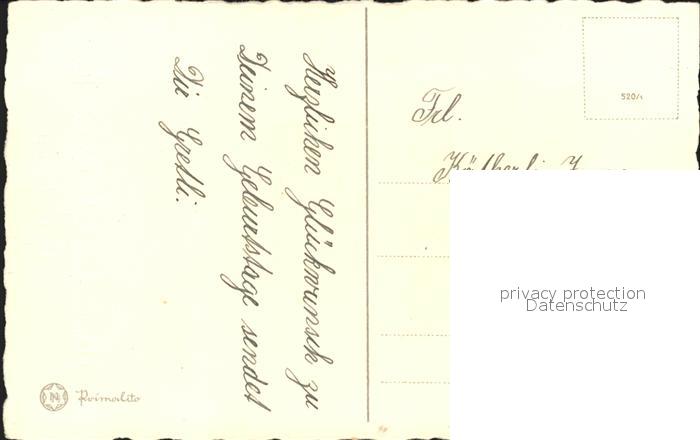 Herzlichen Glückwunsch zu
Deinem Geburtstage sendet
Die Gretli.
Frl.
Kätherli
520/
Primalito
privacy protection
Datenschutz